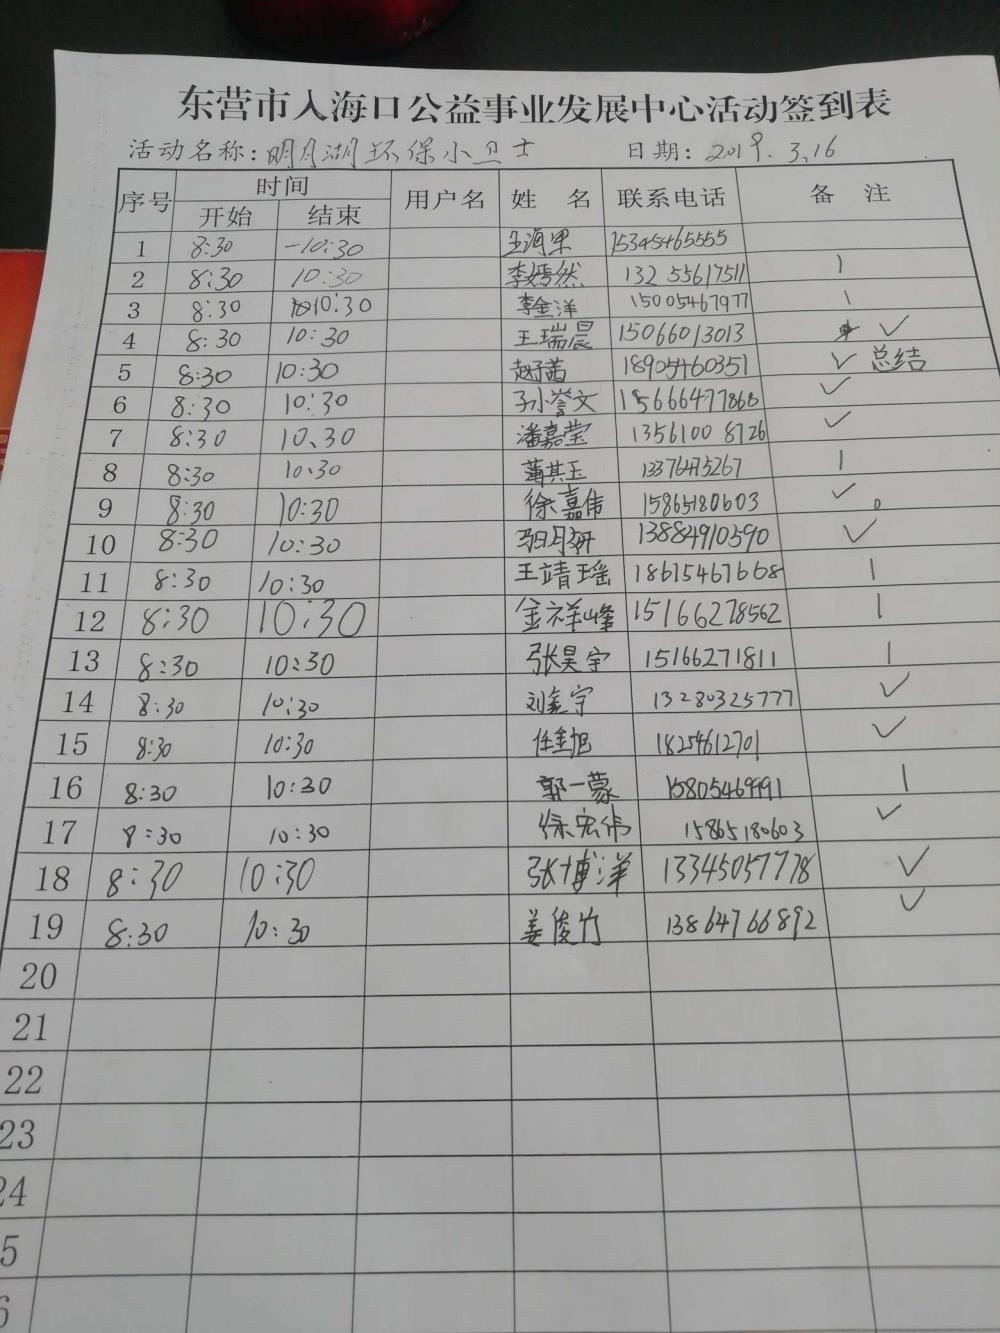 东营市入海口公益事业发展中心活动签到表
活动名称：明月湖环保小卫士 日期：2019.3.16
序号 时间 用户名 姓 名 联系电话 备 注
开始 结束
1 8:30 -10:30 15345465555
2 8:30 10:30 李嫣然 13255617511 |
3 8:30 10:30 李金洋 15005467977 |
4 8:30 10:30 王瑞晨 15066013013 ✓
5 8:30 10:30 赵子茜 18905460351 ✓ 总结
6 8:30 10:30 子小誉文 15666477868 ✓
7 8:30 10.30 潘嘉莹 13561008726 ✓
8 8:30 10:30 蔺其玉 13376475267 |
9 8:30 10:30 徐嘉伟 15865180603 ✓
10 8:30 10:30 13884910590 ✓
11 8:30 10:30 王靖瑶 18615467668 |
12 8:30 10:30 金祥峰 15166278562 |
13 8:30 10:30 张昊宇 15166271811 |
14 8:30 10:30 刘鑫宇 13280325777 ✓
15 8:30 10:30 18254612701 ✓
16 8:30 10:30 郭一蒙 15805469991 |
17 8:30 10:30 徐宏伟 15865180603 ✓
18 8:30 10:30 张博洋 13345057778 ✓
19 8:30 10:30 姜俊竹 13864766892 ✓
20
21
22
23
24
5
6